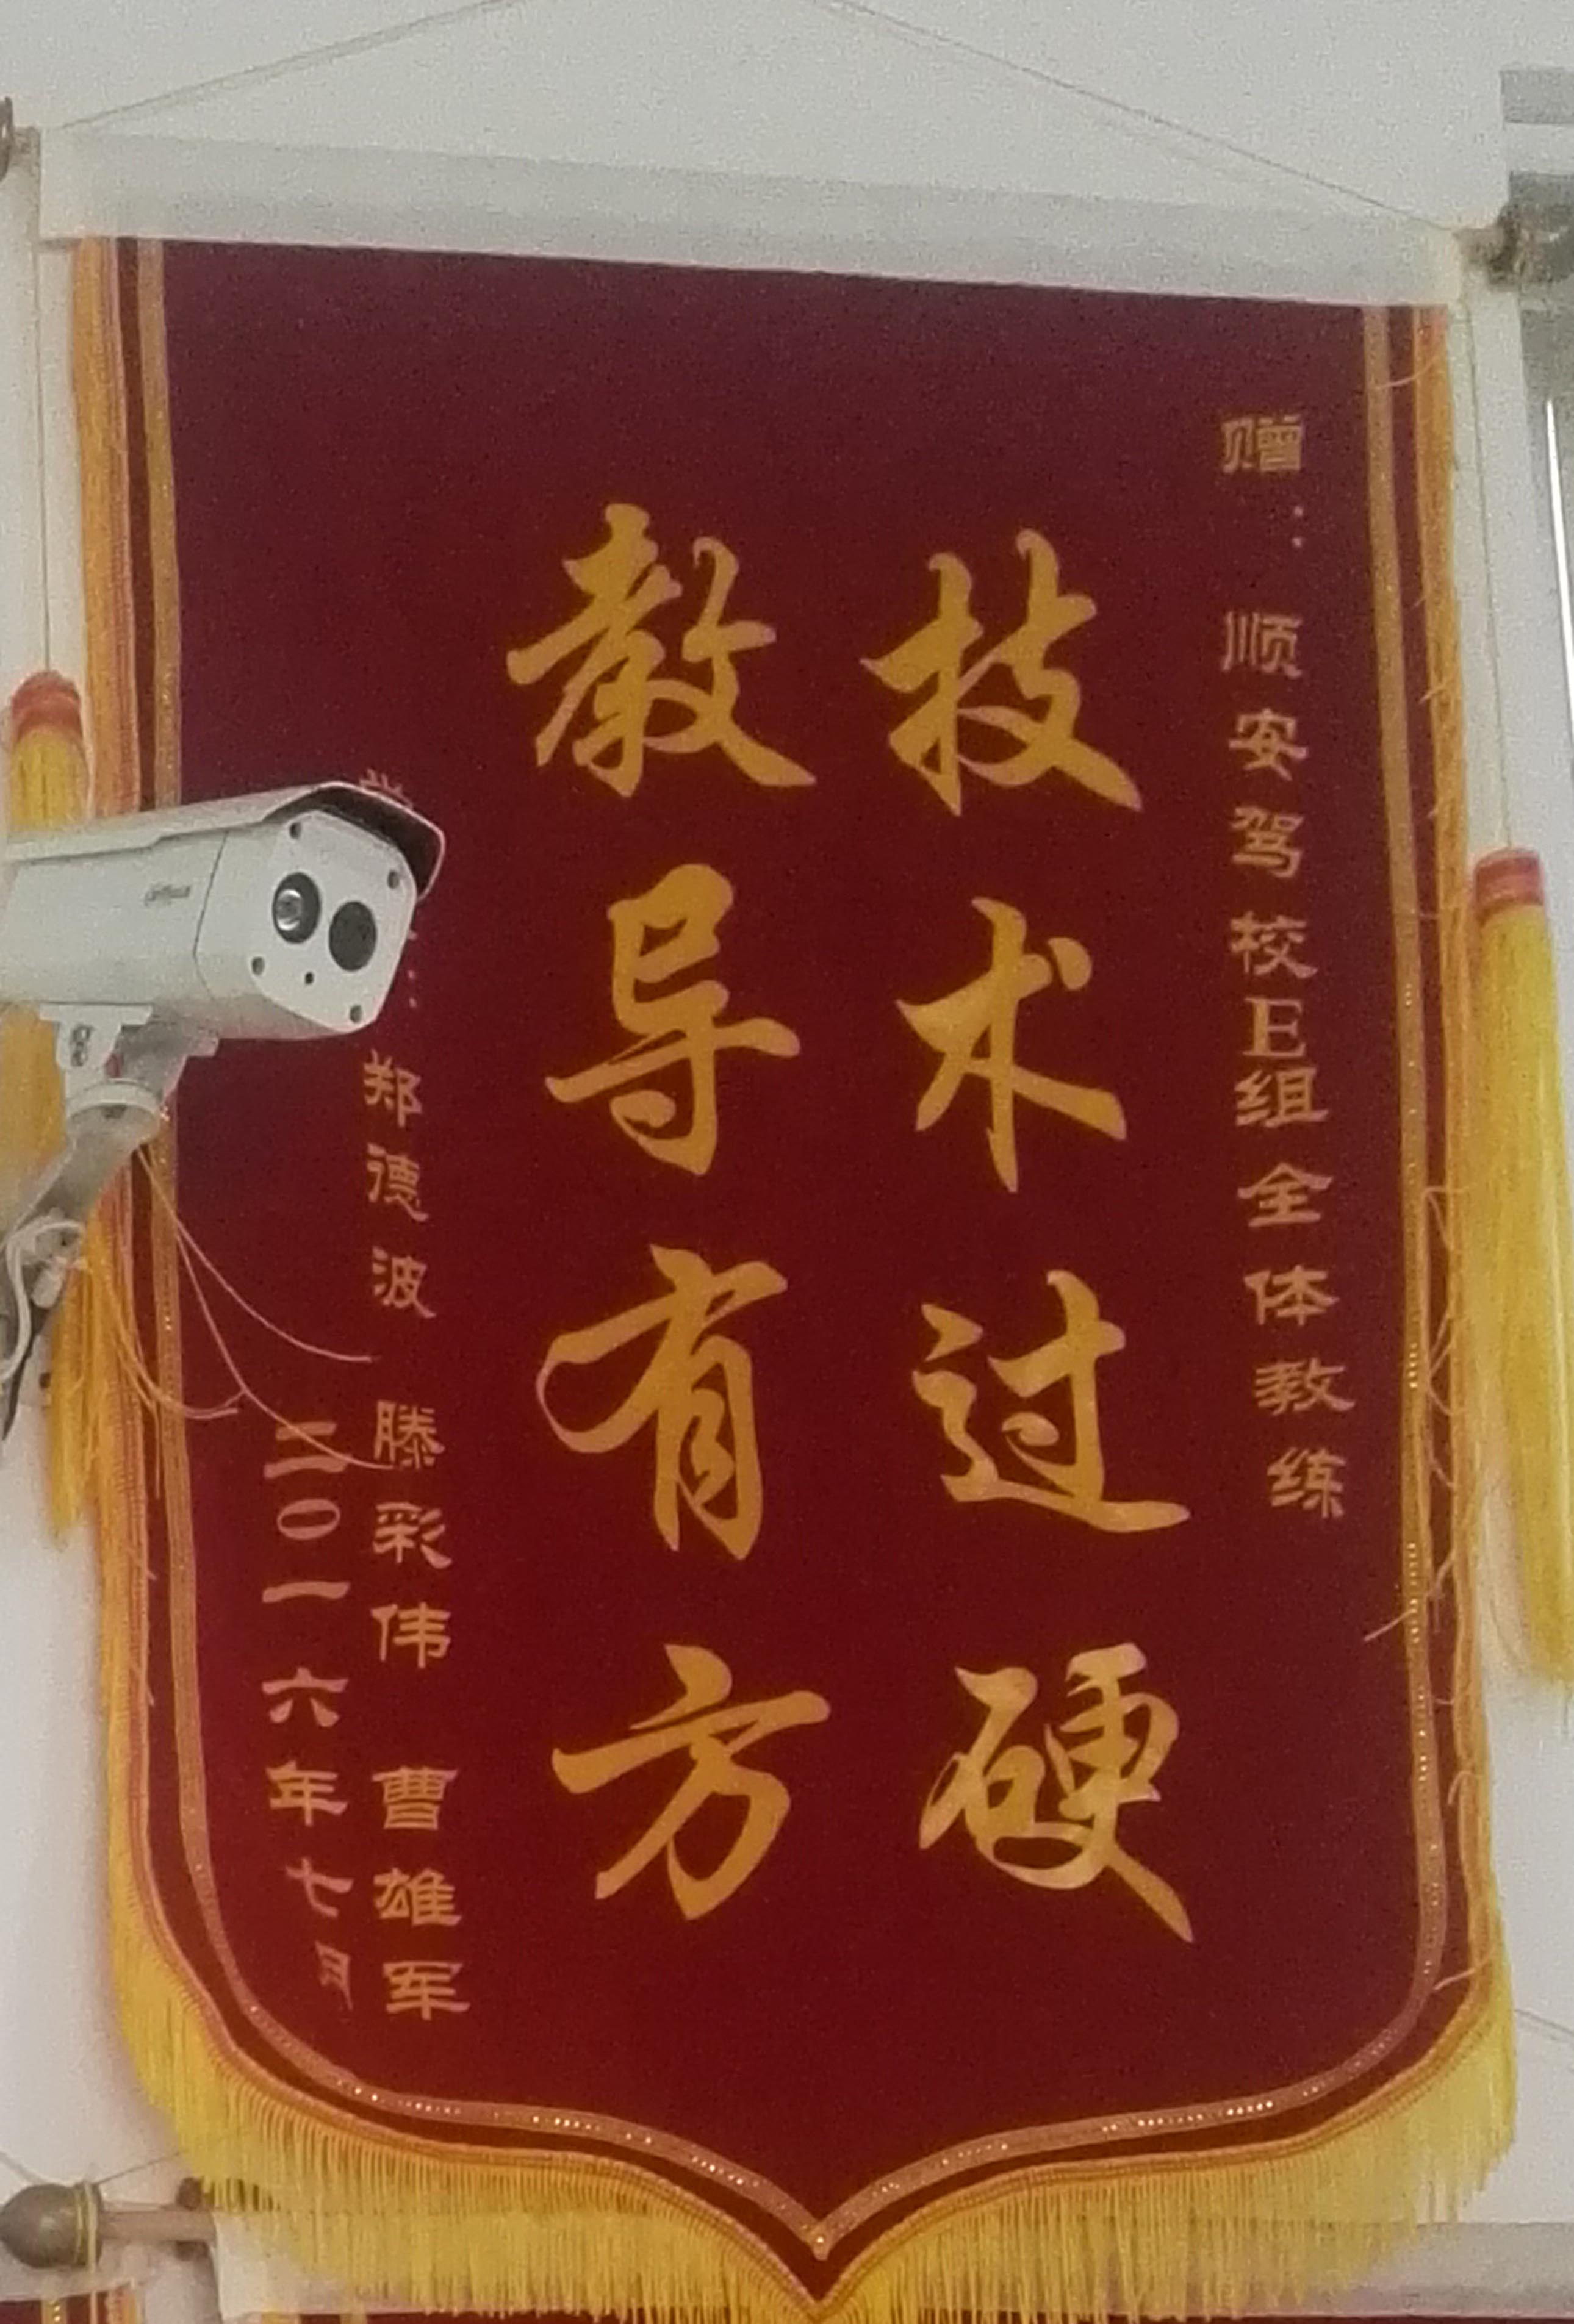 赠：顺安驾校E组全体教练
技术过硬
教导有方
郑德波 滕彩伟 曹雄军
二〇一六年七月